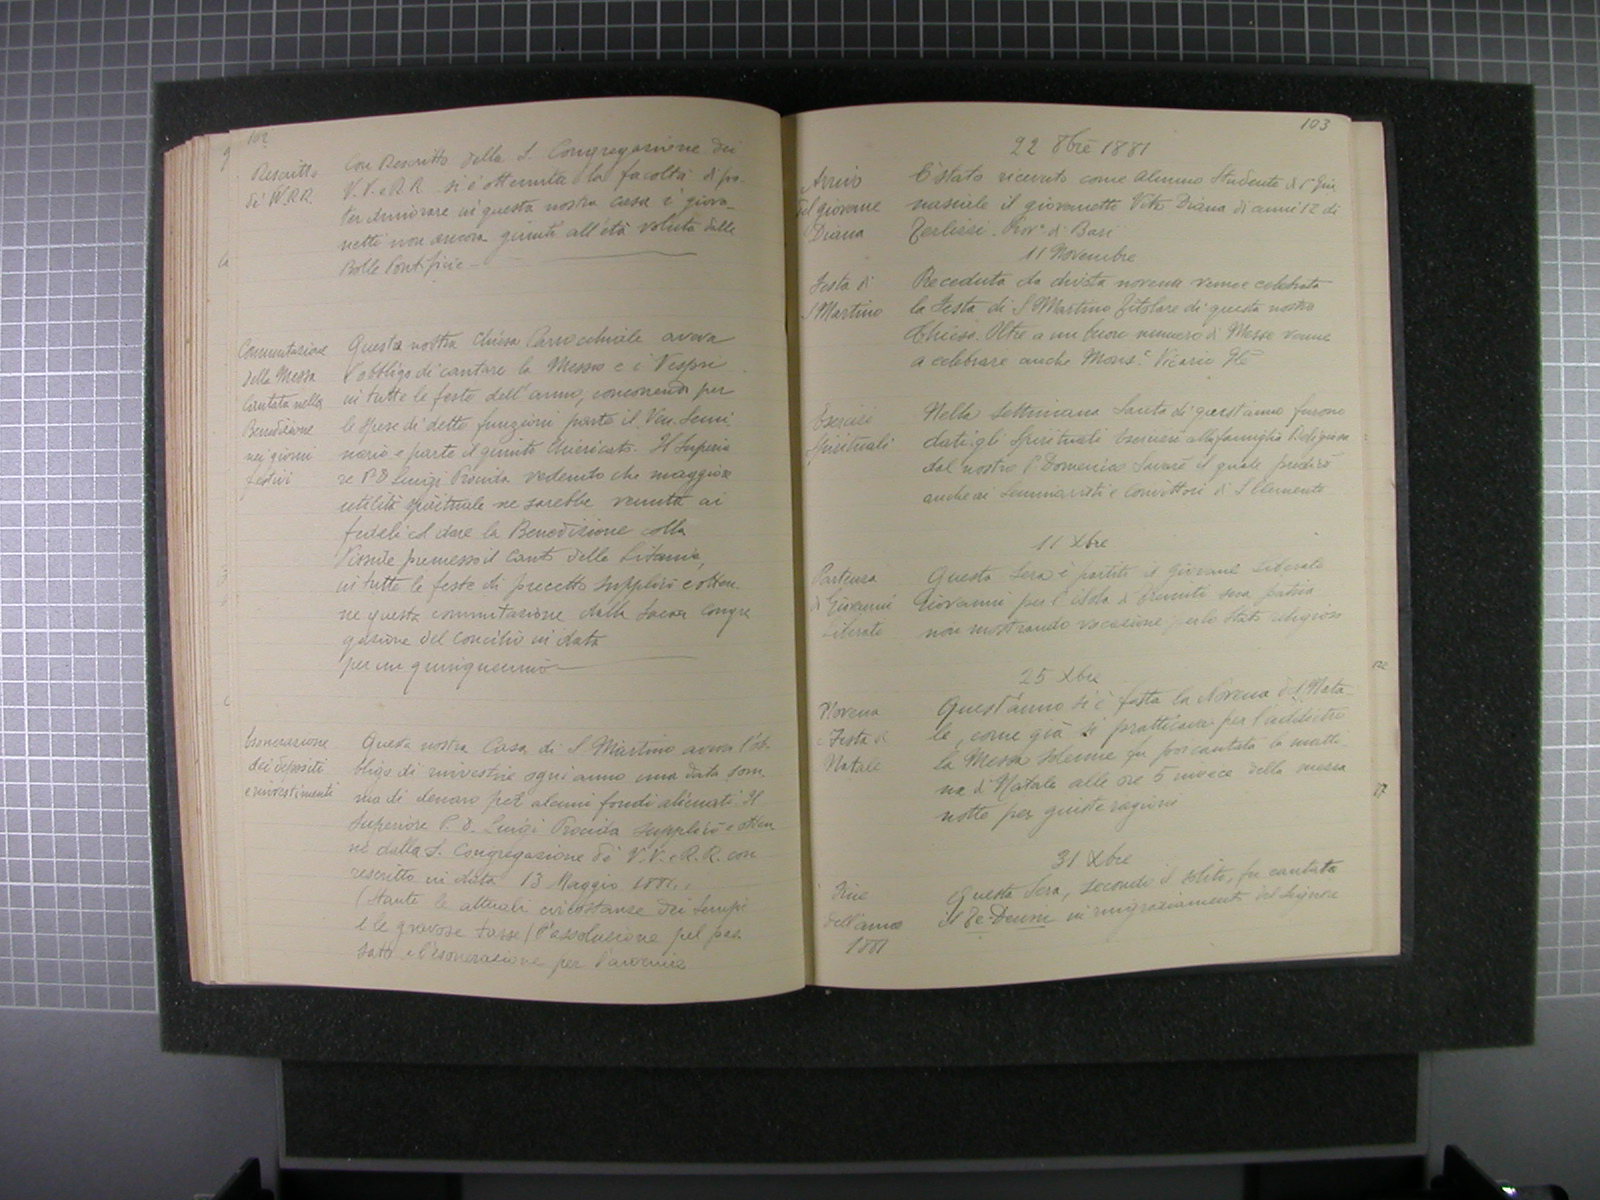 102
Rescritto
de' VV.RR.
Con Rescritto della S. Congregazione dei
V.V. e R.R. si è ottenuta la facoltà di po-
ter dimorare in questa nostra casa i giova-
netti non ancora giunti all'età voluta dalle
Bolle Pontificie
Commutazione
della Messa
Cantata nella
Benedizione
nei giorni
festivi
Questa nostra Chiesa Parrocchiale aveva
l'obbligo di cantare la Messa e i Vespri
in tutte le feste dell'anno, concorrendo per
le spese di dette funzioni parte il Ven. Semi
nario e parte il giunto Chiericato. Il Superio
re P. D. Luigi Procida vedendo che maggiore
utilità spirituale ne sarebbe venuta ai
fedeli col dare la Benedizione colla
Pisside premesso il canto delle Litanie,
in tutte le feste di precetto supplicò e otten
ne questa commutazione dalla Sacra Congre
gazione del Concilio in data
per un quinquennio
Esonerazione
dei depositi
e rinvestimenti
Questa nostra Casa di S. Martino aveva l'ob
bligo di rinvestire ogni anno una data som
ma di denaro per alcuni fondi alienati. Il
Superiore P. D. Luigi Procida supplicò e otten
ne dalla S. Congregazione de' V.V. e R.R. con
rescritto in data 13 Maggio 1881
(stante le attuali circostanze dei tempi
e le gravose tasse) l'assoluzione pel pas
sato e l'esonerazione per l'avvenire
103
22 8bre 1881
Arrivo
del giovane
Diana
È stato ricevuto come alunno studente di 1ª gin
nasiale il giovanetto Vito Diana di anni 12 di
Terlizzi. Prov.ª di Bari
11 Novembre
Festa di
S Martino
Preceduta da divota novena venne celebrata
la festa di S Martino Titolare di questa nostra
Chiesa. Oltre a un buon numero di Messe venne
a celebrare anche Mons.r Vicario Gle
Esercizi
Spirituali
Nella Settimana Santa di quest'anno furono
dati gli Spirituali Esercizi alla famiglia Religiosa
dal nostro P Domenico Savarè il quale predicò
anche ai Seminaristi e Convittori di S Clemente
11 Xbre
Partenza
di Giovanni
Liberato
Questa sera è partito il giovane Liberato
Giovanni per l'isola di Tremiti sua patria
non mostrando vocazione per lo Stato religioso
25 Xbre
Novena
e Festa di
Natale
Quest'anno si è fatta la Novena di S Nata-
le, come già si pratticava per l'addietro
la Messa solenne fu poi cantata la matti
na di Natale alle ore 5 invece della mezza
notte per giuste ragioni
31 Xbre
Fine
dell'anno
1881
Questa sera, secondo il solito, fu cantato
il Te-Deum in ringraziamento del Signore